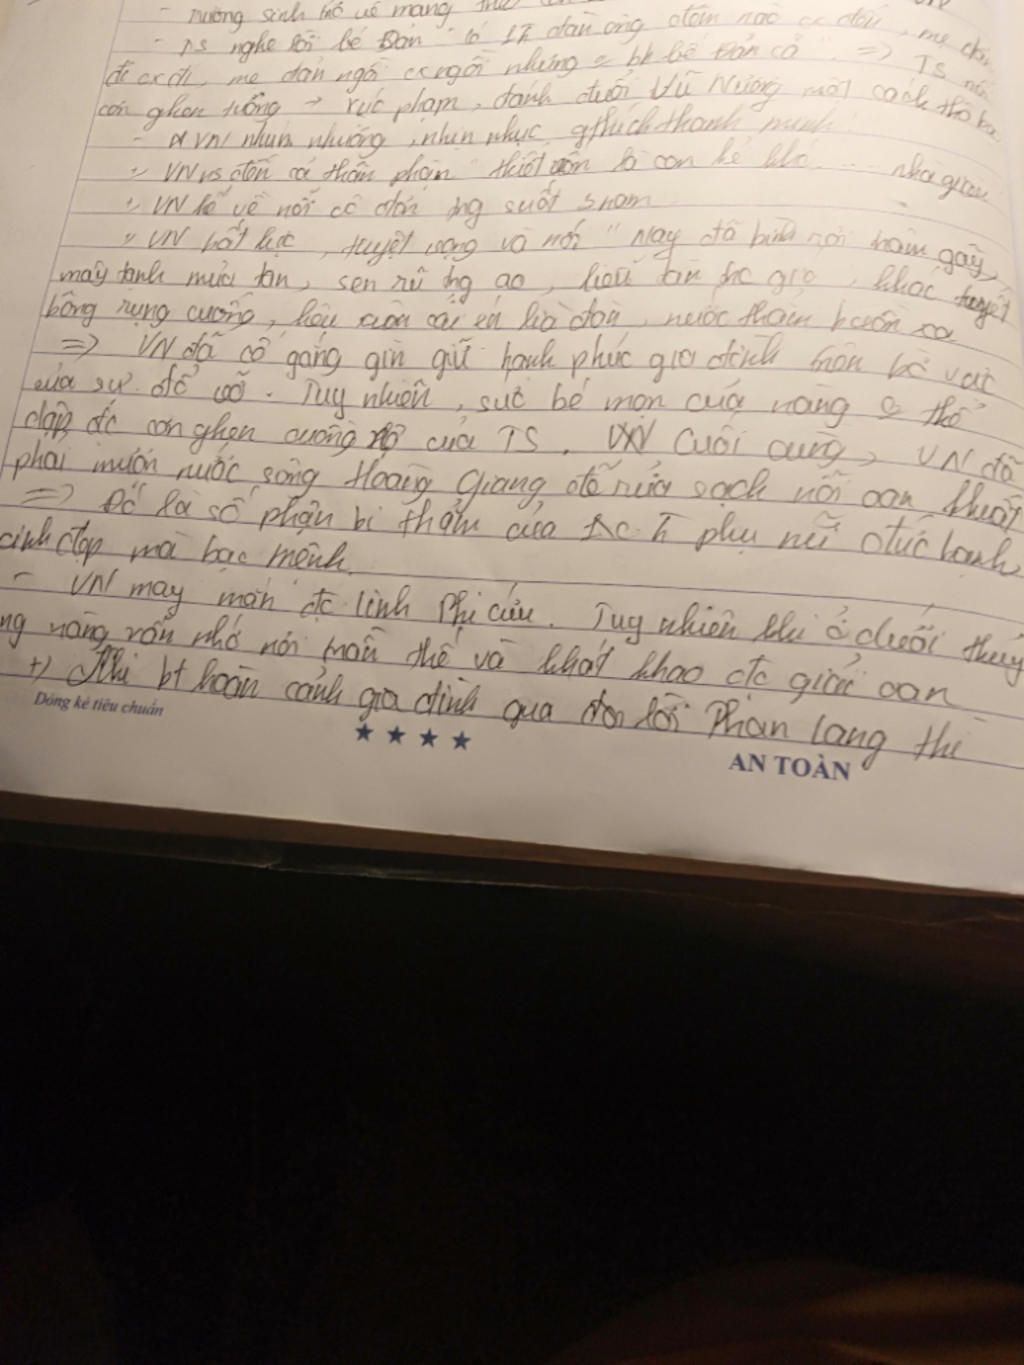 - Trương Sinh trở về mang
- TS nghe lời bé Đản "có 1 đàn ông đêm nào cx đến, mẹ
đi cx đi, mẹ đản ngồi cx ngồi nhưng bế Đản cả" => TS
cơn ghen tuông → , đánh đuổi Vũ Nương một cách thô bạo
- VN nhún nhường, nhịn nhục, gthích thanh minh
VN đến cả thân phận "thiếp vốn là con kẻ khó .... nhà giàu
VN kể về nỗi cô đơn ng suốt 3 năm
VN bất lực, tuyệt vọng và nói "Nay đã bình rơi trâm gãy,
mây tạnh mưa tan, sen rũ ng ao, liễu tàn gió, khóc tuyết
bông rụng cuống, kêu xuân cái én lìa đàn, nước thẳm buồm xa
=> VN đã cố gắng gìn giữ hạnh phúc gia đình trên bờ vực
của sự đổ vỡ. Tuy nhiên, sức bé mọn của nàng thể
dập đc cơn ghen cuồng nộ của TS. Cuối cùng, VN đã
phải mượn nước sông Hoàng Giang để rửa sạch nỗi oan khuất
=> Đó là số phận bi thảm của phụ nữ đức hạnh
xinh đẹp mà bạc mệnh.
- VN may mắn đc Linh Phi cứu. Tuy nhiên khi ở dưới thủy
ng nàng vẫn nhớ nơi trần thế và khát khao đc giải oan
+) Khi bt hoàn cảnh gia đình qua lời Phan Lang thì
Dòng kẻ tiêu chuẩn
★ ★ ★ ★
AN TOÀN